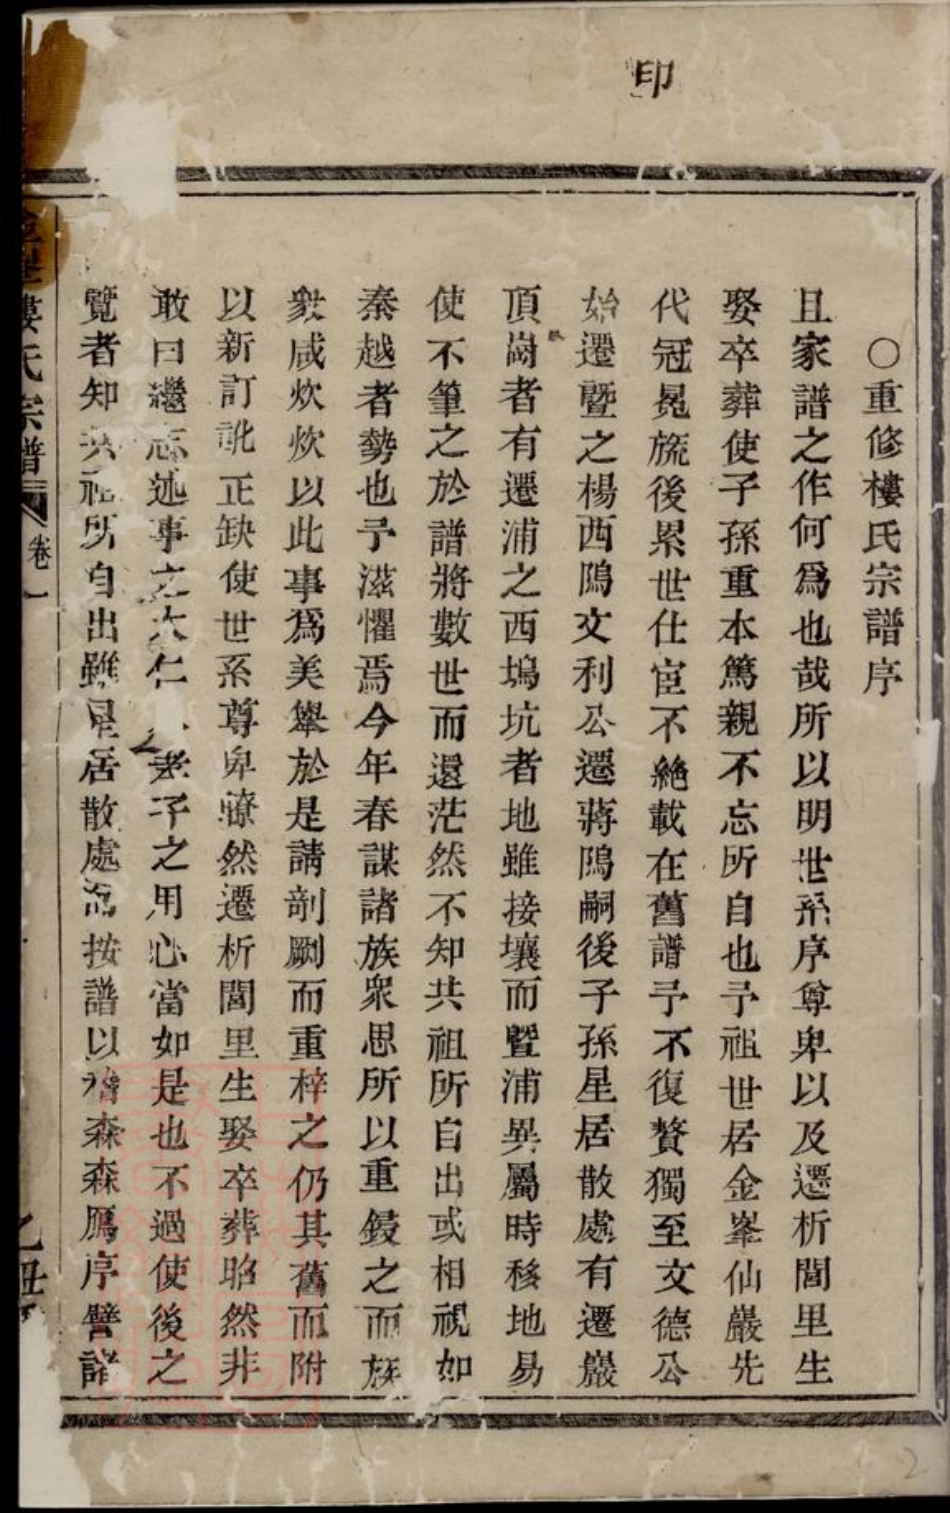 印
○重修樓氏宗譜序
且家譜之作何爲也哉所以明世系序尊卑以及遷析閭里生
娶卒葬使子孫重本篤親不忘所自也予祖世居金峯仙巖先
代冠冕旒後累世仕宦不絶載在舊譜予不復贅獨至文德公
始遷暨之楊西隝文利公遷蔣隝嗣後子孫星居散處有遷巖
頂崗者有遷浦之西塢坑者地雖接壤而暨浦異屬時移地易
使不筆之於譜將數世而還茫然不知共祖所自出或相視如
秦越者勢也予滋懼焉今年春謀諸族衆思所以重鋟之而族
衆咸炊炊以此事爲美舉於是請剞劂而重梓之仍其舊而附
以新訂訛正缺使世系尊卑瞭然遷析閭里生娶卒葬昭然非
敢曰繼志述事之大仁人孝子之用心當如是也不過使後之
覽者知共祖所自出雖星居散處而按譜以稽森森鴈序譬諸
樓氏宗譜 卷一